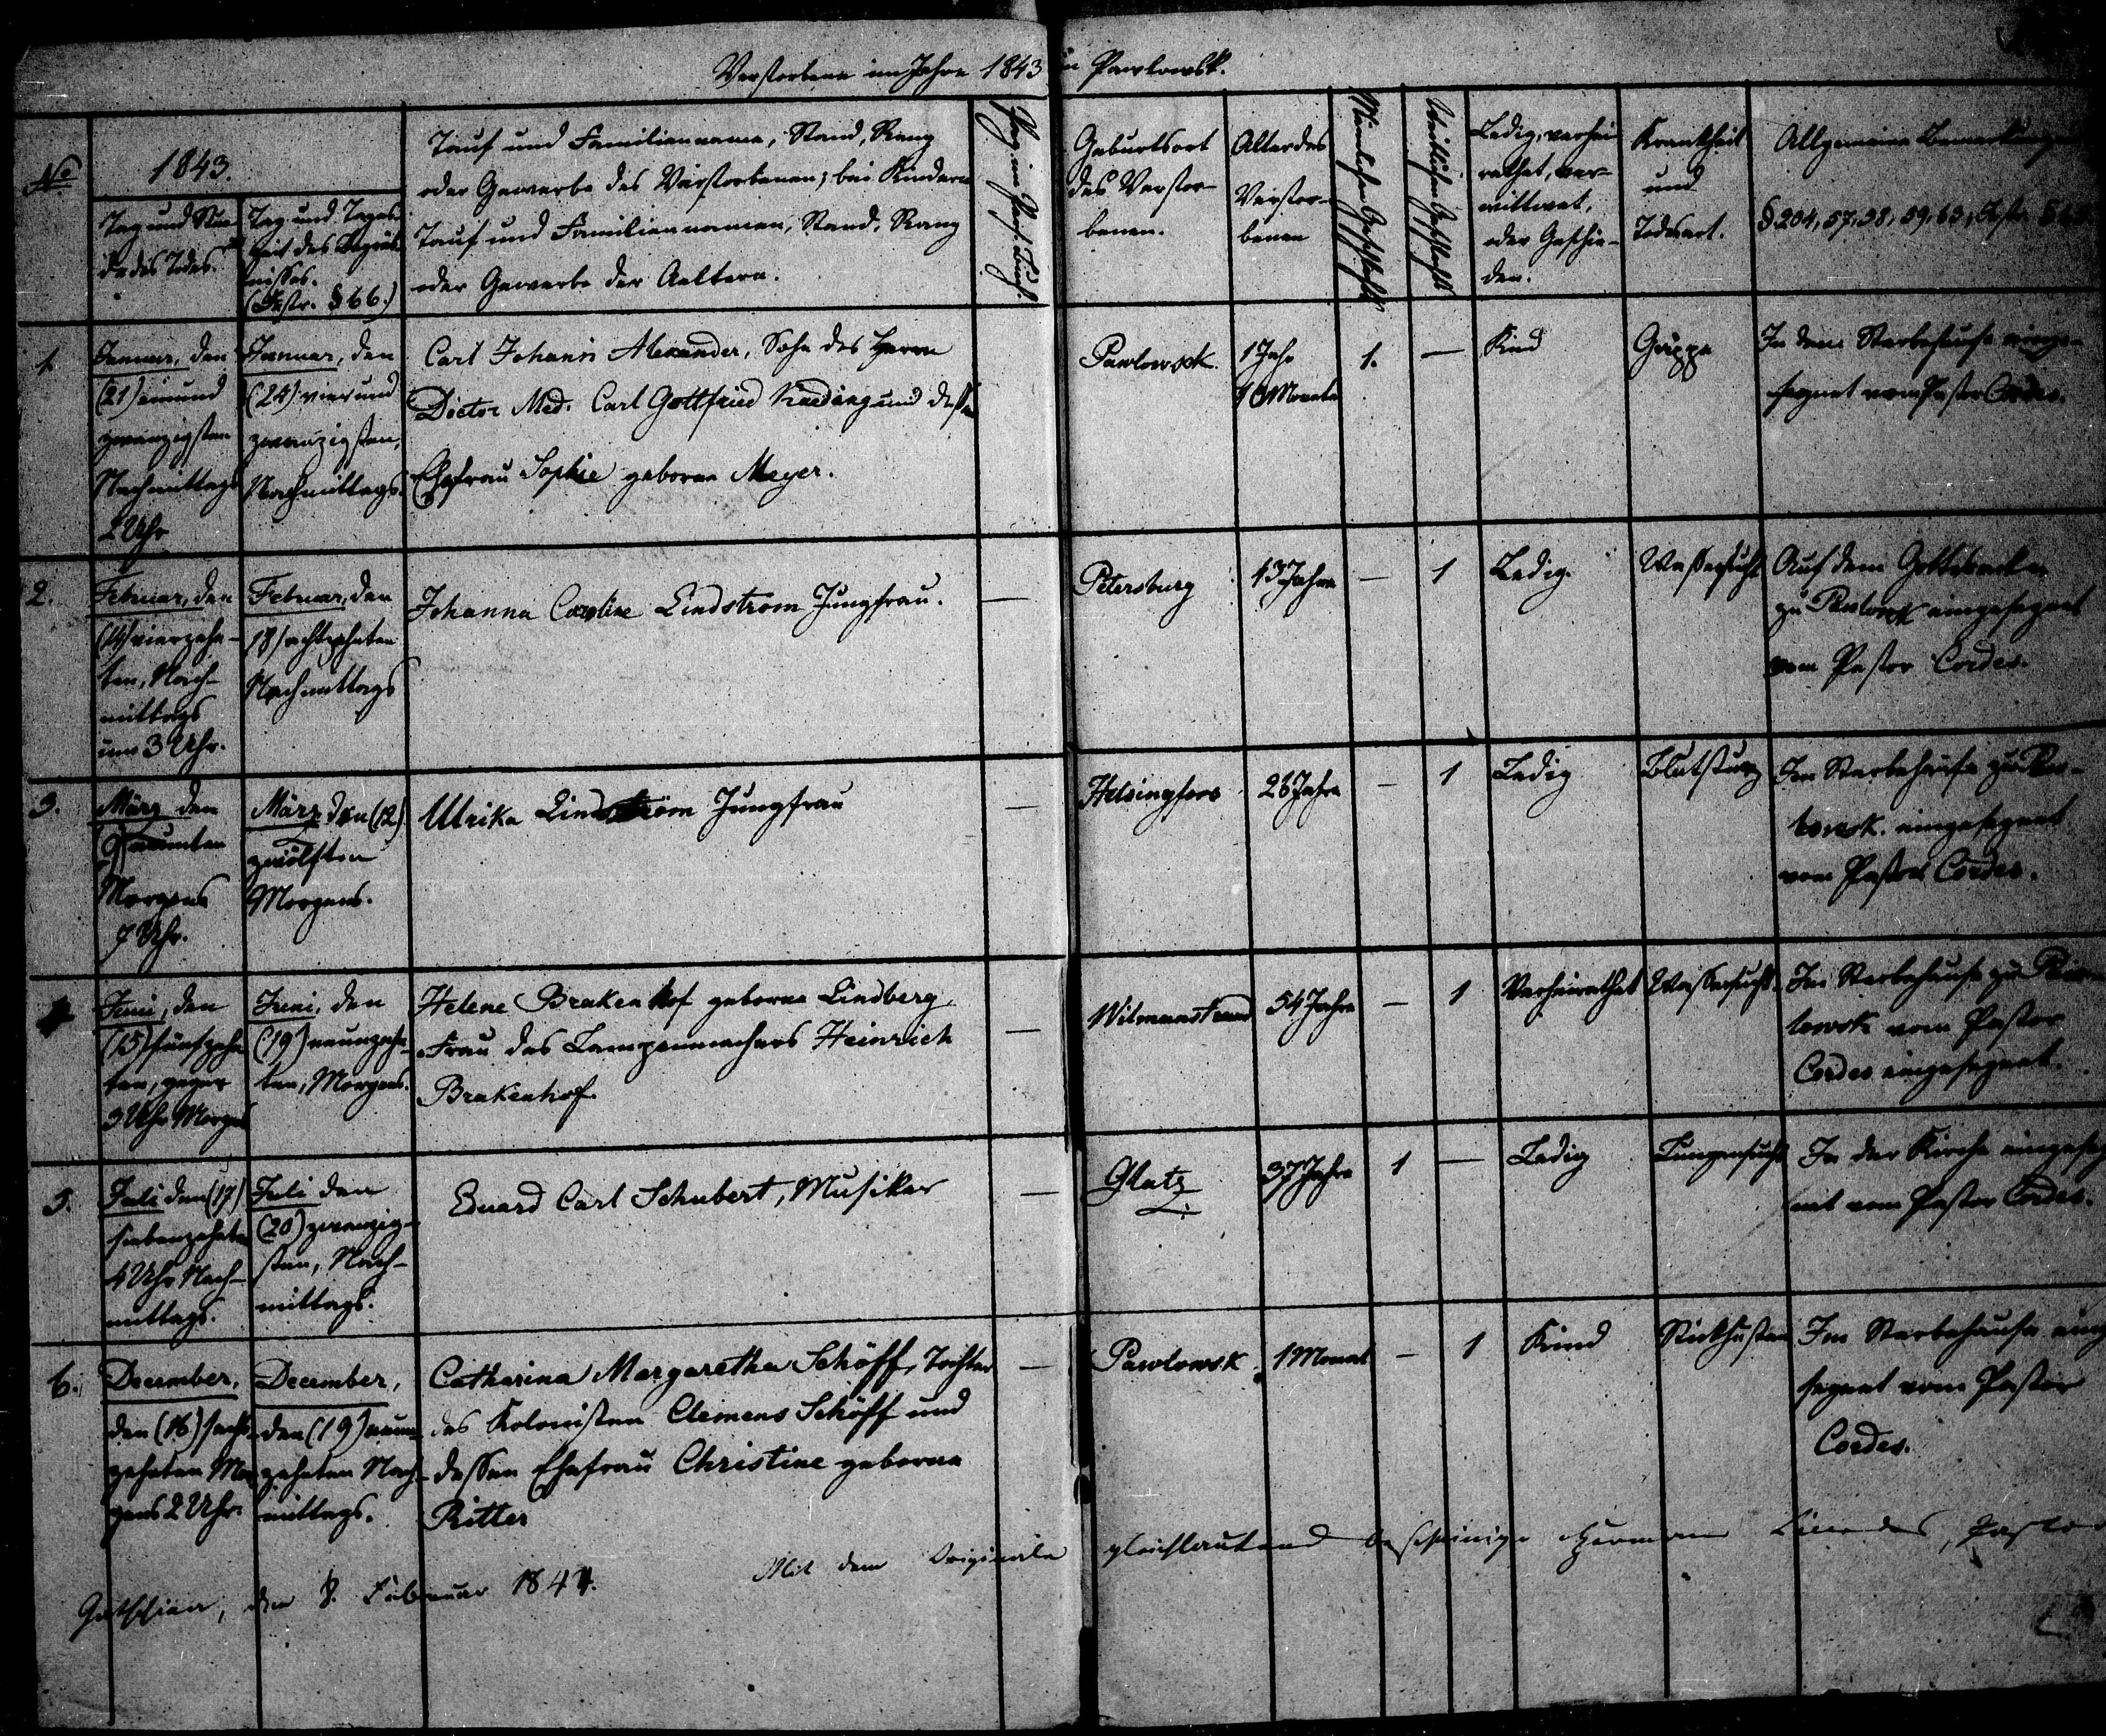 Verstorbene im Jahre 1843 in Pawlowsk.
№
1843.
Tag und Stun-
de des Todes.
Tag und Tages-
zeit des Begräb-
nisses.
(Instr. § 66.)
Tauf und Familienname, Stand, Rang
oder Gewerbe des Verstorbenen; bei Kindern
Tauf und Familiennamen, Stand, Rang
oder Gewerbe der Aeltern.
Pag. im Pers. Buch.
Geburtsort
des Verstor-
benen.
Alter des
Verstor-
benen
Männlichen Geschlechts
Weiblichen Geschlechts
Ledig, verhei-
rathet, ver-
wittwet,
oder Geschie-
den.
Krankheit
und
Todesart.
Allgemeine Bemerkungen
§ 204, 57, 58, 59, 63, Instr. §
1.
Januar, den
(21) einund
zwanzigsten
Nachmittags
2 Uhr
Januar, den
(24) vierund
zwanzigsten,
Nachmittags.
Carl Johann Alexander, Sohn des Herrn
Doctor Med. Carl Gottfried und dessen
Ehefrau Sophie geborne Meyer.
Pawlowsk.
1 Jahr
10 Monate
1.
—
Kind
Grippe
In dem Sterbehause einge-
segnet vom Pastor Cordes.
2.
Februar, den
(14) vierzehn-
ten, Nach-
mittags
um 3 Uhr.
Februar, den
18) achtzehnten
Nachmittags
Johanna Caroline Lindstrom Jungfrau.
—
Petersburg
13 Jahre
—
1
Ledig.
Wassersucht
Auf dem Gottesacker
zu Pawlowsk eingesegnet
vom Pastor Cordes.
3.
März den
9) neunten
Morgens
7 Uhr.
März den (12)
zwölften
Morgens.
Ulrika Lindström Jungfrau
—
Helsingfors
26 Jahre
—
1
Ledig
Blutsturz
Im Sterbehause zu Paw-
lowsk. eingesegnet
vom Pastor Cordes.
4
Juni, den
(15) fünfzehn
ten, gegen
3 Uhr Morgens
Juni, den
(19) neunzehn-
ten, Morgens.
Helene Brakenhof geborne Lindberg
Frau des Lampenmachers Heinrich
Brakenhof.
—
Wilmanstrand
54 Jahre
—
1
Verheirathet
Wassersucht.
Im Sterbehause zu Paw-
lowsk vom Pastor
Cordes eingesegnet.
5.
Juli den (17)
siebenzehnten
4 Uhr Nach-
mittags.
Juli den
(20) zwanzig-
sten, Nach-
mittags.
Eduard Carl Schubert, Musiker
—
Glatz
37 Jahre
1
—
Ledig
Lungensucht
In der Kirche eingeseg-
net vom Pastor Cordes.
6.
December,
den (16) sechs-
zehnten Mor-
gens 2 Uhr.
December,
den (19) neun-
zehnten Nach-
mittags.
Catharina Margaretha Schöff, Tochter
des Kolonisten Clemens Schöff und
dessen Ehefrau Christine geborne
Ritter
—
Pawlowsk.
1 Monat
—
1
Kind
Stickhusten
Im Sterbehause einge-
segnet vom Pastor
Cordes.
Mit dem Originale gleichlautend bescheinige Hermann Pastor
Gatschina, den 8. Februar 1844.